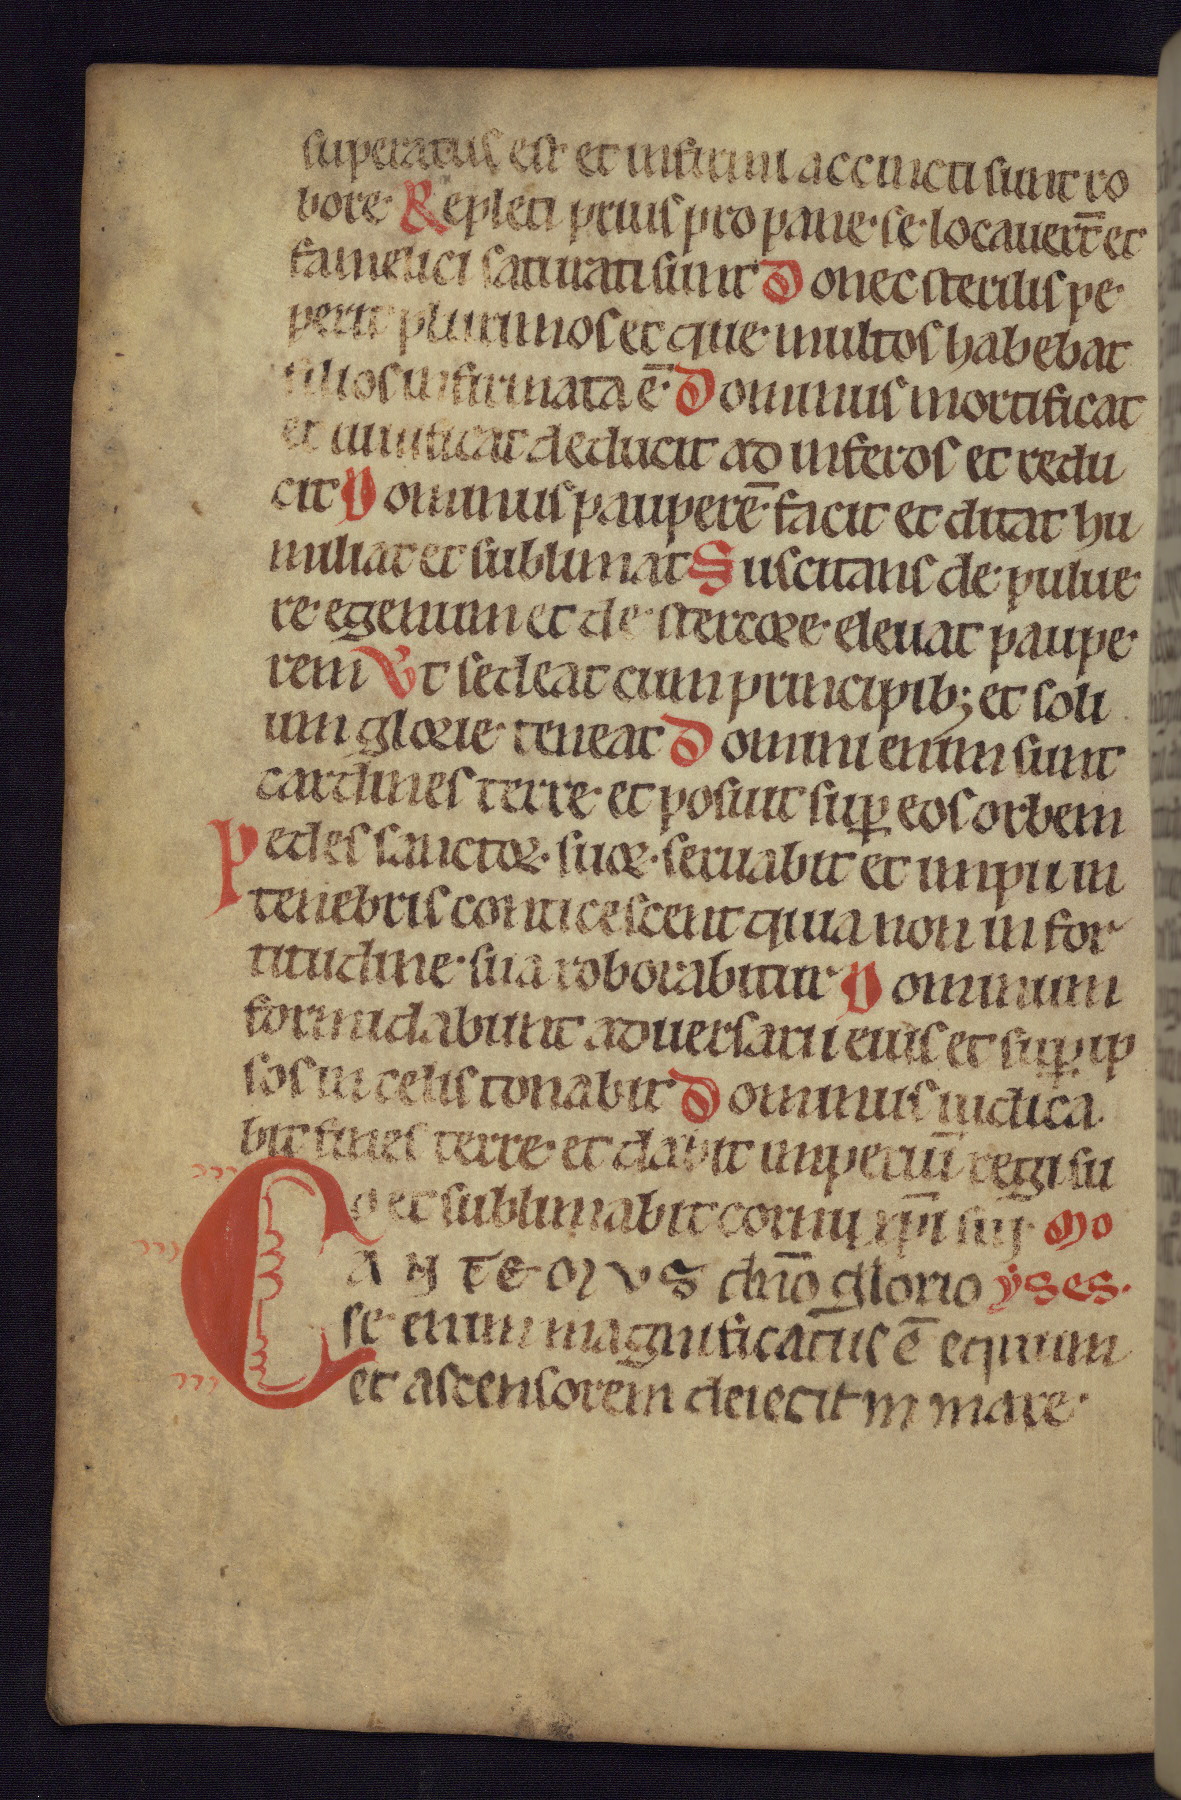 superatus est et infirmi accincti sunt ro
bore· Repleti prius pro pane· se· locauert̄ et
famelici saturati sunt Donec sterilis pe·
perit plurimos et que· multos habebat
filios infirmata ē· Dominus mortificat
et uiuificat deducit ad inferos et redu
cit Dominus pauperē· facit et ditat hu
miliat et sublimat Suscitans de· pulue·
re· egenum et de· stercore· eleuat paupe·
rem Vt sedeat cum principib; et soli
um glorie· teneat Domini enim sunt
cardines terre· et posuit suꝑ eos orbem
Pedes sanctoꝝ· suoꝝ· seruabit et impii in
tenebris conticescent quia non in for
titudine· sua roborabitur Dominum
formidabunt aduersarii eius et suꝑ ip
sos in celis tonabit Dominus iudica
bit fines terre· et dabit imperiū regi su
o et sublimabit cornu xp̄i sui· Mo
CANTEMVS dn̄o glorio yses·
se· enim magnificatus ē equum
et ascensorem deiecit in mare·